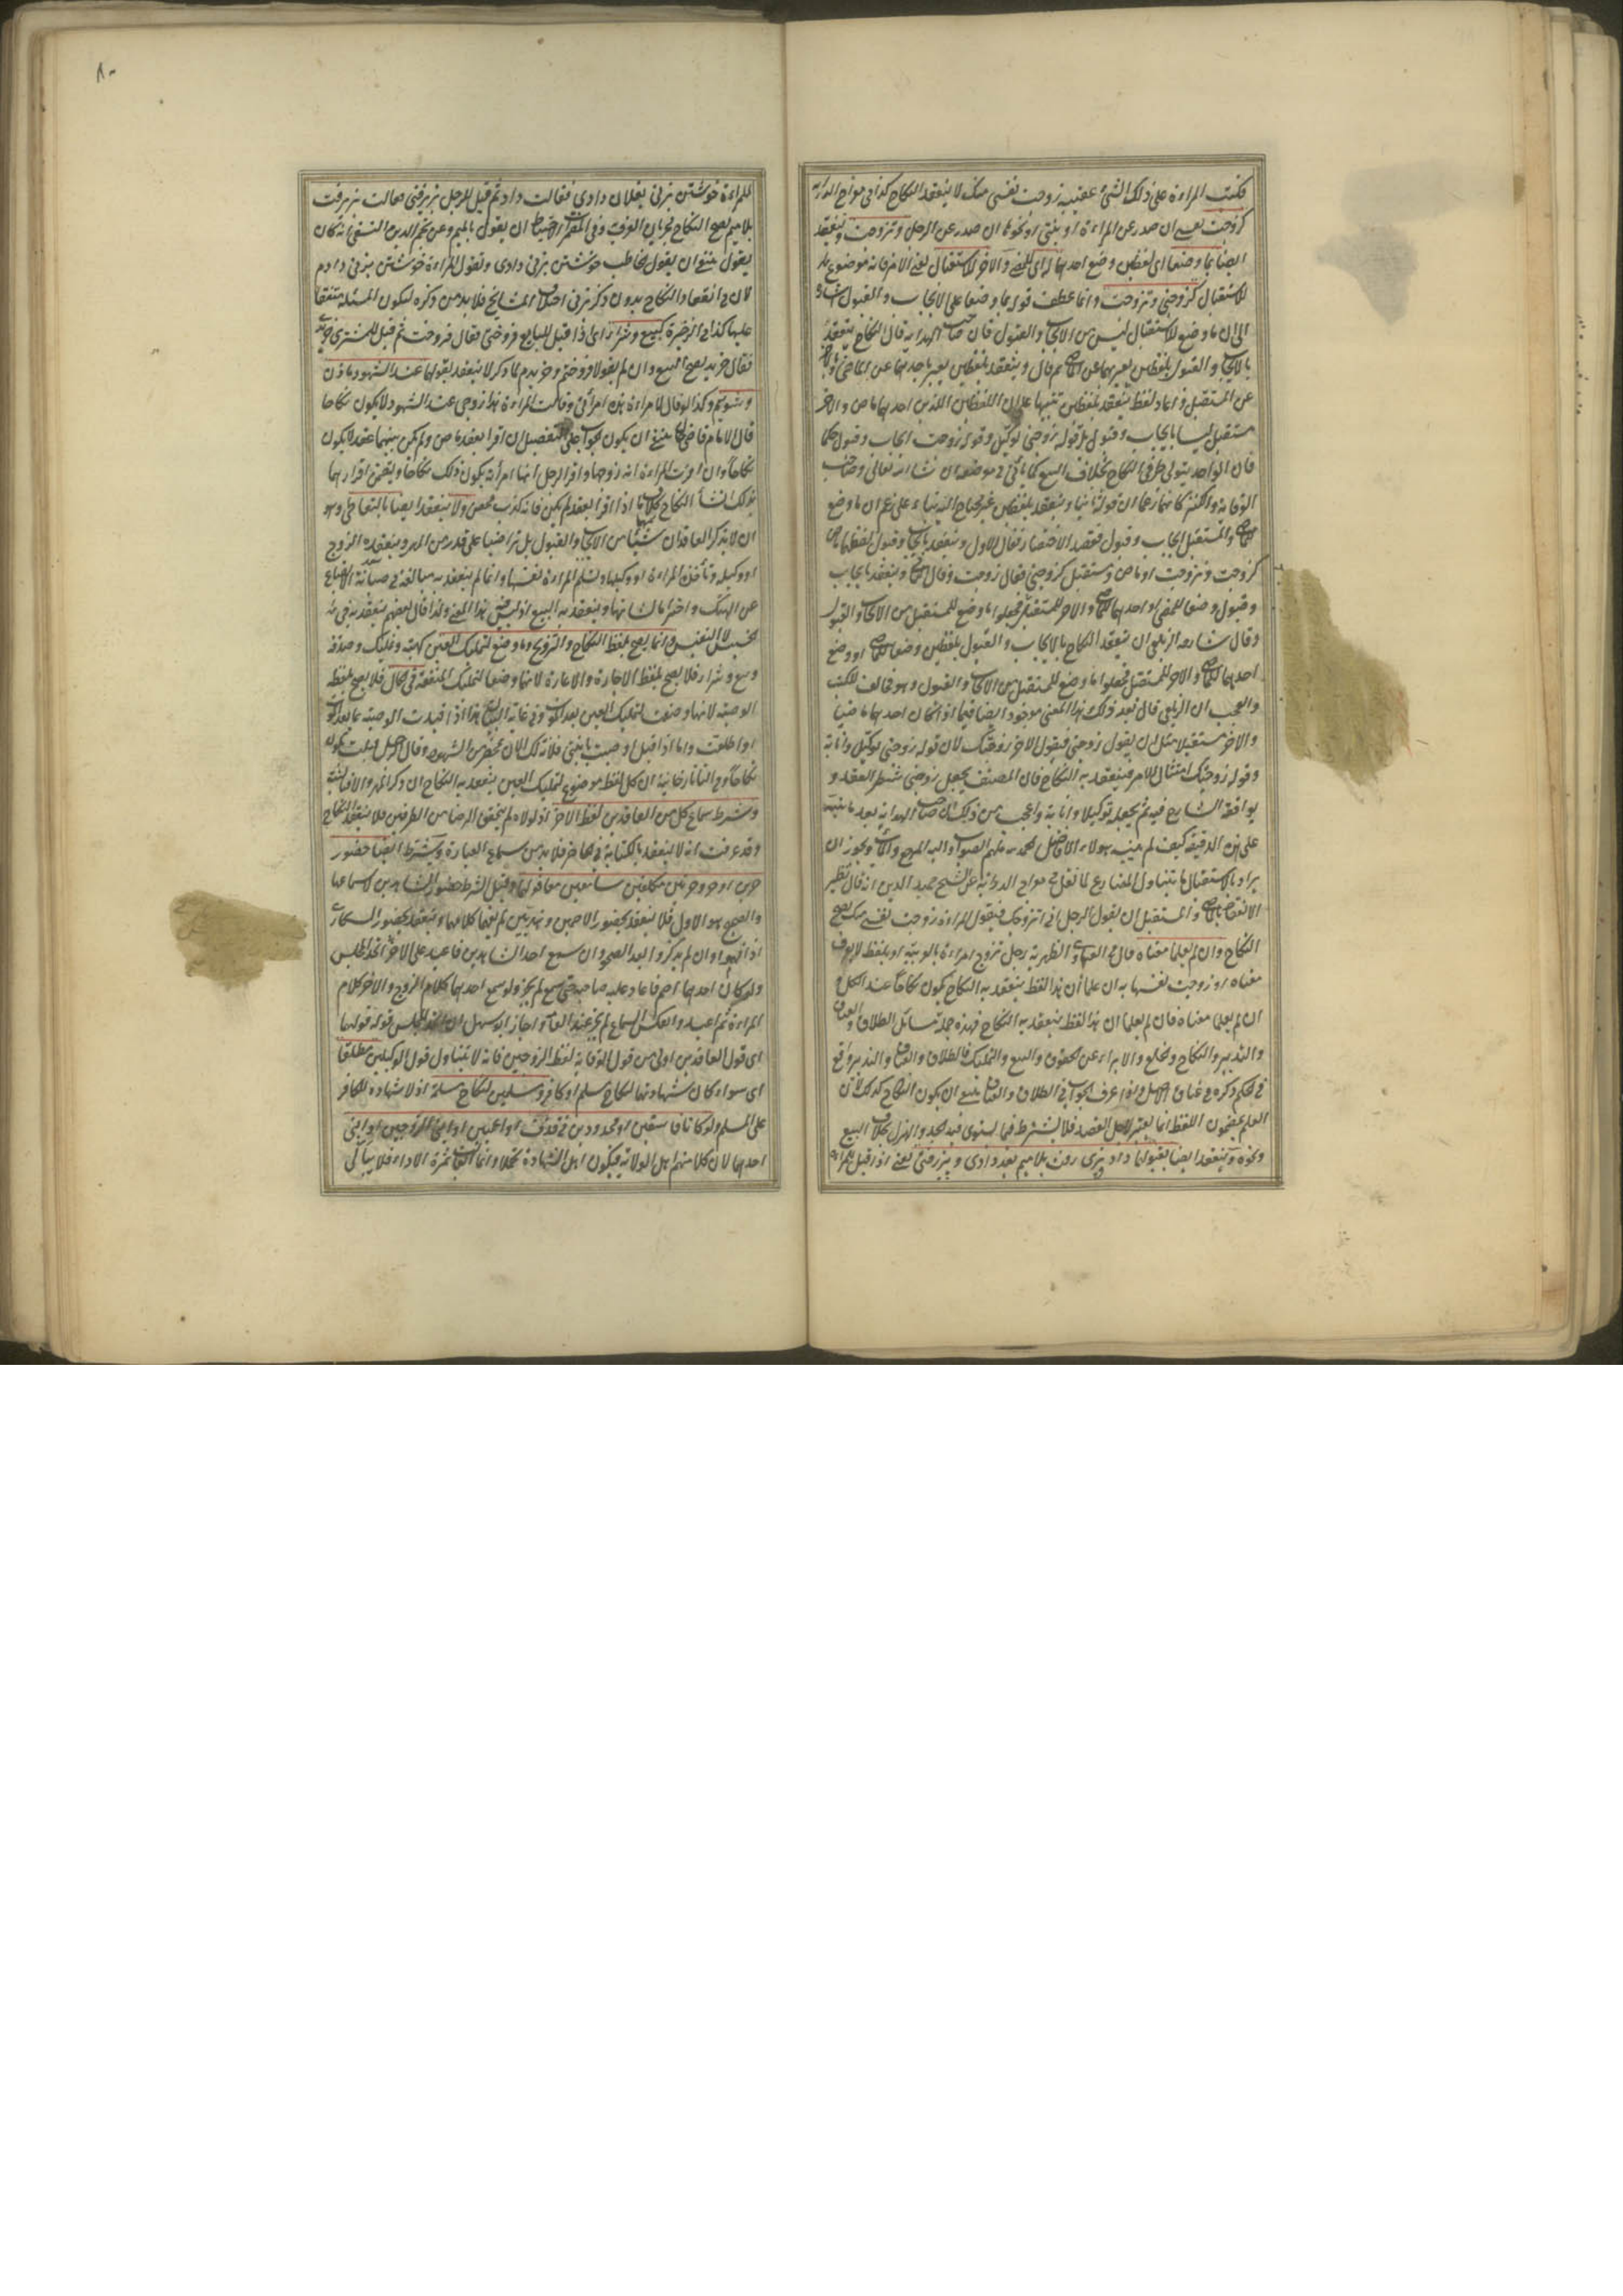 فكتبت المراءة على ذلك الشئ عقيبه زوجت نفسى منك لا ينعقد النكاح كذا فى معراج الدراية
كزوجت نفسى ان صدر عن المراءة او بنتى او نحوها ان صدر عن الرجل وتزوجت وينعقد
ايضا بما وضعا اى لفظين وضع احدهما له اى للمضى والآخر للاستقبال يعنى الامر فانه موضوع
للاستقبال كزوجنى وتزوجت وانما عطف قوله بما وضعا على الايجاب والقبول اشارة
الى ان ما وضع للاستقبال ليس من الايجاب والقبول فان صاحب الهداية قال النكاح ينعقد
بالايجاب والقبول بلفظين يعبر بهما عن الماضى ثم قال وينعقد بلفظين يعبر باحدهما عن الماضى وبالآخر
عن المستقبل واعاد لفظ ينعقد بلفظين تنبيها على ان اللفظين اللذين احدهما ماض والآخر
مستقبل ليسا بايجاب وقبول بل قوله زوجنى توكيل وقوله زوجت ايجاب وقبول حكما
فان الواحد يتولى طرفى النكاح بخلاف البيع كما يأتى فى موضعه ان شاء الله تعالى وصاحب
الوقاية والكنز كانهما زعما ان قوله ثانيا وينعقد بلفظين غير محتاج اليه بناء على زعم ان ما وضع
للماضى والمستقبل ايجاب وقبول فقصد الاختصار فقال الاول وينعقد بايجاب وقبول لفظهما ماض
كزوجت وتزوجت او ماض ومستقبل كزوجنى فقال زوجت وقال وينعقد بايجاب
وقبول وضعا للمضى او احدهما للماضى والآخر للمستقبل فجعلوا ما وضع للمستقبل من الايجاب والقبول
وقال شارحه الزيلعى ان ينعقد النكاح بالايجاب والقبول بلفظين وضعا للماضى او وضع
احدهما للماضى والآخر للمستقبل فجعلوا ما وضع للمستقبل من الايجاب والقبول وهو مخالف للكتب
والعجب ان الزيلعى قال بعد ذلك هذا المعنى موجود ايضا فيما اذا كان احدهما ماضيا
والآخر مستقبلا مثل ان يقول زوجنى فيقول الآخر زوجتك لان قوله زوجنى توكيل وانابة
وقوله زوجتك امتثال لامره فينعقد به النكاح فان المصنف يجعل زوجنى شطر العقد و
يوافقه الشارح فيه ثم يجعله توكيلا وانابة واعجب من ذلك ان صاحب الهداية بعد ما نبه
على هذه الدقيقة كيف لم يتنبه هولاء الافاضل فحمد ملهم الصواب واليه المرجع والمآب ويجوز ان
يراد بالاستقبال ما يتناول المضارع لما نقل فى معراج الدراية عن الشيخ حميد الدين انه قال نظير
الانعقاد بالماضى والمستقبل ان يقول الرجل انى اتزوجك فيقول المراءة زوجت نفسى منك يصح
النكاح وان لم يعلما معناه قال فى الفتاوى الظهيرية رجل تزوج امراءة بالعربية او بلفظ لا يعرف
معناه او زوجت نفسها به ان علما ان هذا لفظ ينعقد به النكاح يكون نكاحا عند الكل و
ان لم يعلما معناه فان لم يعلما ان هذا لفظ ينعقد به النكاح فهذه جملة مسائل الطلاق والعتاق
والتدبير والنكاح والخلع والابراء عن الحقوق والبيع والتمليك فالطلاق والعتاق والتدبير واقع
فى الحكم ذكره فى عتاق الاصل واذا عرف الجواب فى الطلاق والعتاق ينبغى ان يكون النكاح كذلك لان
العلم بمضمون اللفظ انما يعتبر لاجل القصد فلا يشترط فيما يستوى فيه الجد والهزل بخلاف البيع
ونحوه وينعقد ايضا بقبولهما داد وپذيرفت بلا ميم بعد دادى وپذيرفتى يعنى اذا قيل للمراءة
للمراءة خويشتن بزنى بفلان دادى فقالت داد ثم قيل للرجل پذيرفتى فقالت پذيرفت
بلا ميم يصح النكاح لجريان العرف وفى احتياط ان يقول بالميم وعن نجم الدين النسفى انه كان
يقول ينبغى ان يقول مخاطب خويشتن بزنى دادى وتقول المراءة خويشتن بزنى دادم
لان فى انعقاد النكاح بدون ذكر بزنى اختلاف المشايخ فلا بد من ذكره ليكون المسئلة متفقا
عليها كذا فى الذخيرة كبيع وشراء اى اذا قيل للبايع فروختى فقال فروخت ثم قيل للمشترى خريدى
فقال خريد يصح البيع وان لم يقولا فروختم وخريدم لما ذكر لا ينعقد بقولهما عند الشهود ما زن
وشوييم وكذا لو قال لامراءة هذه امرأتى وقالت المراءة هذا زوجى عند الشهود لا يكون نكاحا
قال الامام قاضى خان ينبغى ان يكون الجواب على التفصيل ان اقرا بعقد ماض ولم يكن بينهما عقد لا يكون
نكاحا وان اقرت المراءة انه زوجها واقر الرجل انها امرأته يكون ذلك نكاحا ويتضمن اقرارهما
بذلك انشاء النكاح بخلاف ما اذا اقرا بعقد لم يكن فانه كذب محض ولا ينعقد ايضا بالتعاطى وهو
ان لا يذكر العاقدان شيئا من الايجاب والقبول بل تراضيا على قدر من المهر وينقده الزوج
او وكيله وتأخذه المراءة او وكيلها وتسلم المراءة نفسها وانما لم ينعقد به مبالغة فى صيانة الابضاع
عن الهتك واحتراما لشانها وينعقد به البيع اذ ليس فيه هذا المعنى ولذا قال بعضهم ينعقد به فى
الخسيس لا النفيس وانما يصح بلفظ النكاح والتزويج وما وضع لتمليك العين كهبة وتمليك وصدقة
وبيع وشراء فلا يصح بلفظ الاجارة والاعارة لانهما وضعا لتمليك المنفعة فى الحال فلا يصح بلفظ
الوصية لانها وضعت لتمليك العين بعد الموت وفى غاية البيان هذا اذا قيدت الوصية بما بعد الموت
او اطلقت واما اذا قيل اوصيت بابنتى فلانة لك الان بمحضر من الشهود وقال الرجل قبلت يكون
نكاحا وفى التاتارخانية ان كل لفظ موضوع لتمليك العين ينعقد به النكاح ان ذكر المهر والا فبالنية
وشرط سماع كل من العاقدين لفظ الآخر اذ لولاه لم يتحقق الرضا من الطرفين فلا ينعقد النكاح
وقد عرفت انه لا ينعقد بالكتابة فى الحاضر فلا بد من سماع العبارة ويشترط ايضا حضور
حرين او حر وحرتين مكلفين سامعين معا قولهما وقيل الشرط حضور الشاهدين لا سماعهما
والصحيح هو الاول فلا ينعقد بحضور الاصمين وهنديين لم يفهما كلامهما وينعقد بحضور السكارى
اذا فهموا وان لم يذكروا بعد الصحو وان سمع احد الشاهدين فاعيد على الآخر اتحد المجلس
ولو كان احدهما اصم فاعاد عليه صاحبه حتى سمع لم يجز ولو سمع احدهما كلام الزوج والآخر كلام
المراءة ثم اعيد وانعكس السماع لم يجز عند العامة واجاز ابو سهل ان اتحد المجلس قوله قولهما
اى قول العاقدين اولى من قول الوقاية لفظ الزوجين فانه لا يتناول قول الوكيلين مطلقا
اى سواء كان شهادتهما لنكاح مسلم او كافر ومسلمين لنكاح مسلمة اذ لا شهادة للكافر
على المسلم ولو كانا فاسقين او محدودين فى قذف او اعميين او ابنى الزوجين او ابنى
احدهما لان كلا منهم اهل الولاية فيكون اهل الشهادة تحملا وانما الفائت ثمرة الاداء فلا يبالى
٨٠